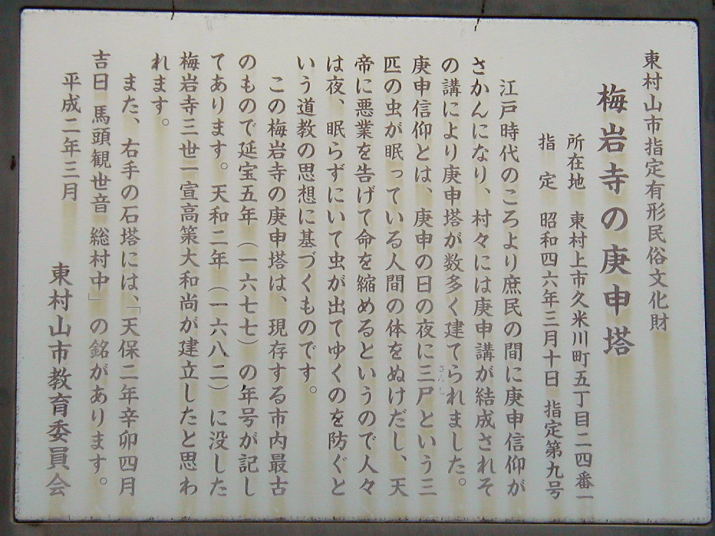 東村山市指定有形民俗文化財
梅岩寺の庚申塔
所在地　東村上市久米川町五丁目二四番一
指　定　昭和四六年三月十日　指定第九号
江戸時代のころより庶民の間に庚申信仰が
さかんになり、村々には庚申講が結成されそ
の講により庚申塔が数多く建てられました。
庚申信仰とは、庚申の日の夜に三尸という三
さんし
匹の虫が眠っている人間の体をぬけだし、天
帝に悪業を告げて命を縮めるというので人々
は夜、眠らずにいて虫が出てゆくのを防ぐと
いう道教の思想に基づくものです。
この梅岩寺の庚申塔は、現存する市内最古
のもので延宝五年（一六七七）の年号が記し
てあります。天和二年（一六八二）に没した
梅岩寺三世一宣高築大和尚が建立したと思わ
れます。
また、右手の石塔には、「天保二年辛卯四月
吉日　馬頭観世音　総村中」の銘があります。
平成二年三月
東村山市教育委員会